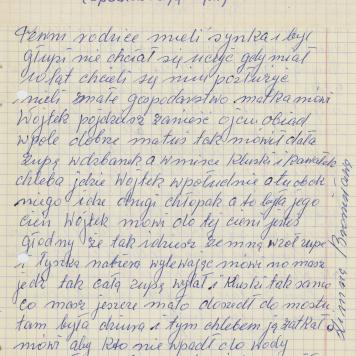 Pewni rodzice mieli synka i był
głupi nie chciał się uczyć gdy miał
10 lat chcieli się nim posłużyć
mieli małe gospodarstwo matka mówi
Wojtek pójdziesz zanieść ojcu obiad
w pole dobrze matuś tak mówił dała
zupę w dzbanek a w misce kluski i kawałek
chleba idzie Wojtek w południe a tu obok
niego idzie drugi chłopak a to była jego
cień Wojtek mówi do tej cieni jesteś
głodny że tak idziesz ze mną wzioł zupę
i łyżką nabiera wylewając mówi no masz
jedz tak całą zupę wylał i kluski tak samo
co masz jeszcze mało doszedł do mostu
tam była dziura i tym chlebem ją zatkał
mówi aby kto nie wpadł do wody